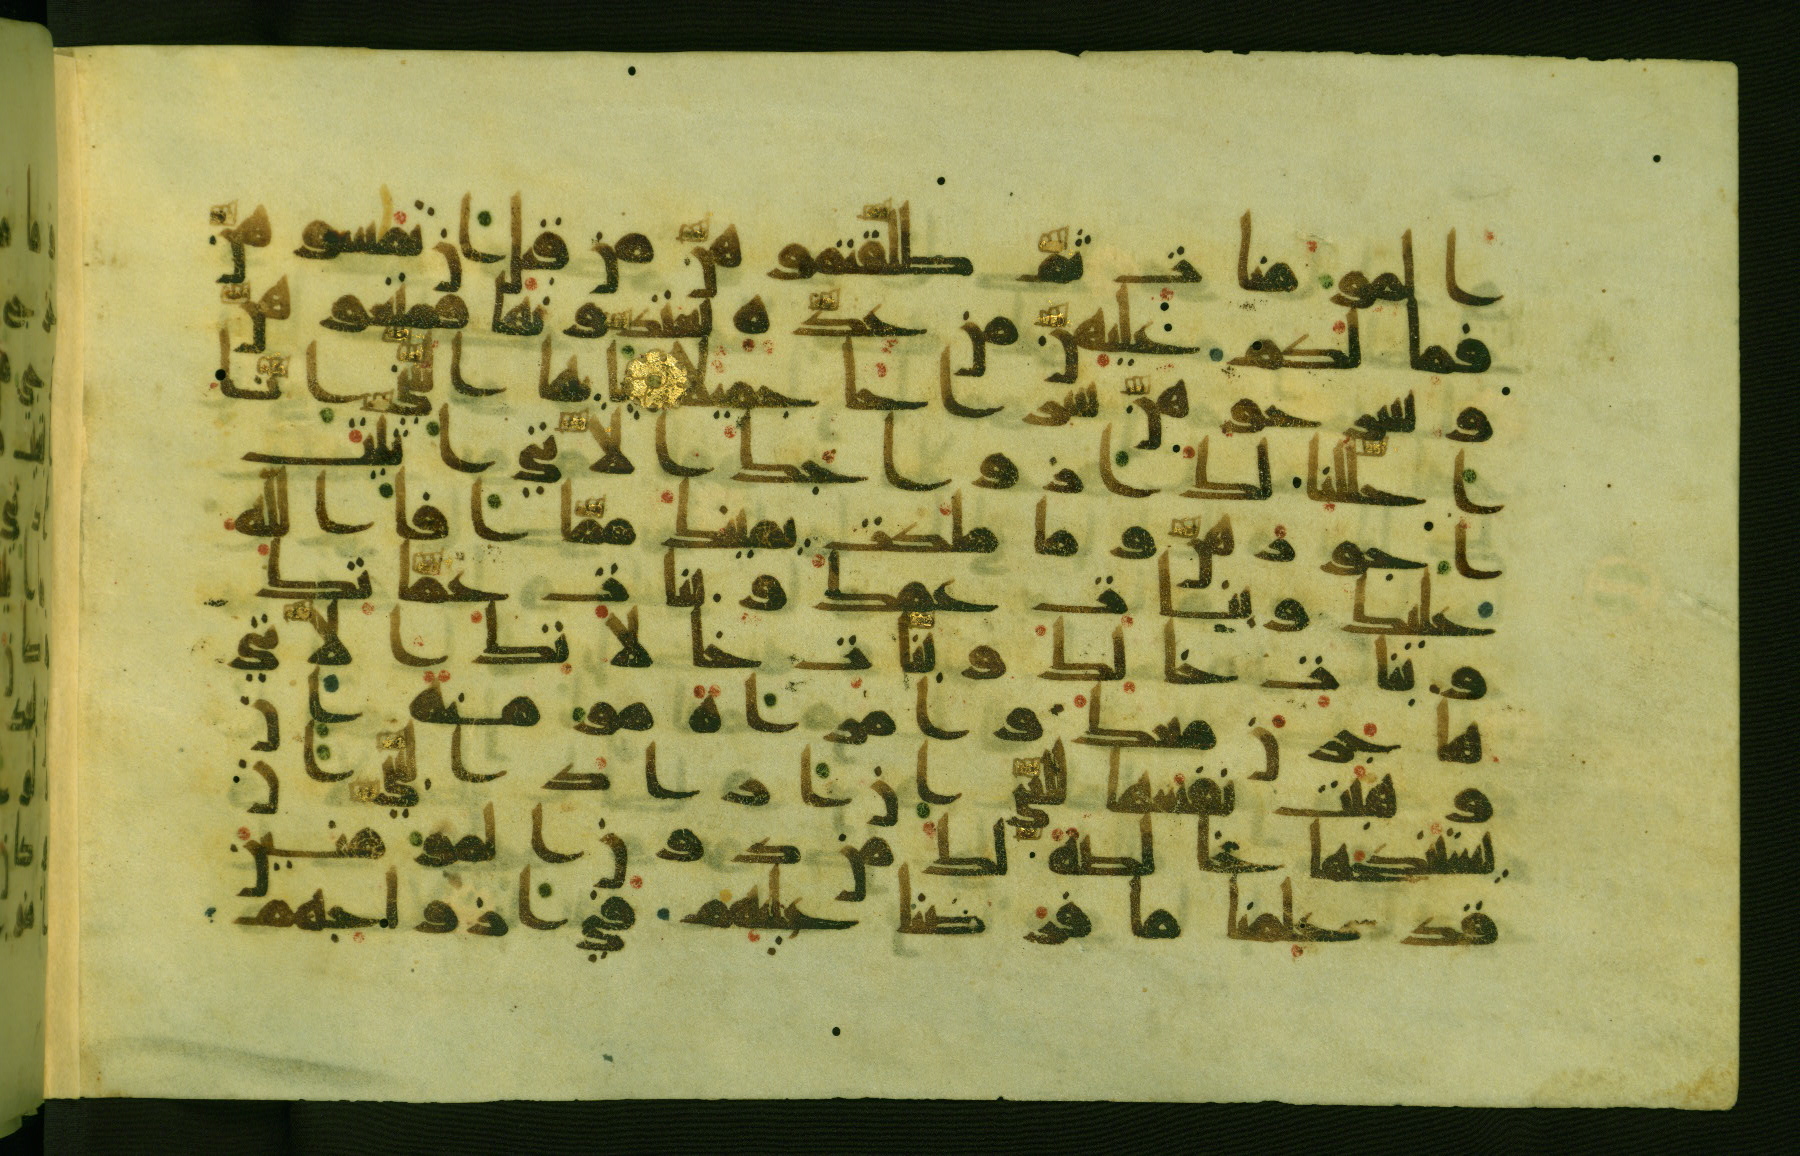 المومنات ثم طلقتموهن من قبل ان تمسوهن
فما لكم عليهن من عدة تعتدونها فمتعوهن
وسرحوهن سراحا جميلا يايها النبي انا
احللنا لك ازواجك التي اتيت
اجورهن وما ملكت يمينك مما افا الله
عليك وبنات عمك وبنات عماتك
وبنات خالك وبنات خالاتك التي
هاجرن معك وامراة مومنة ان
وهبت نفسها للنبي ان اراد النبي ان
يستنكحها خالصة لك من دون المومنين
قد علمنا ما فرضنا عليهم في ازواجهم